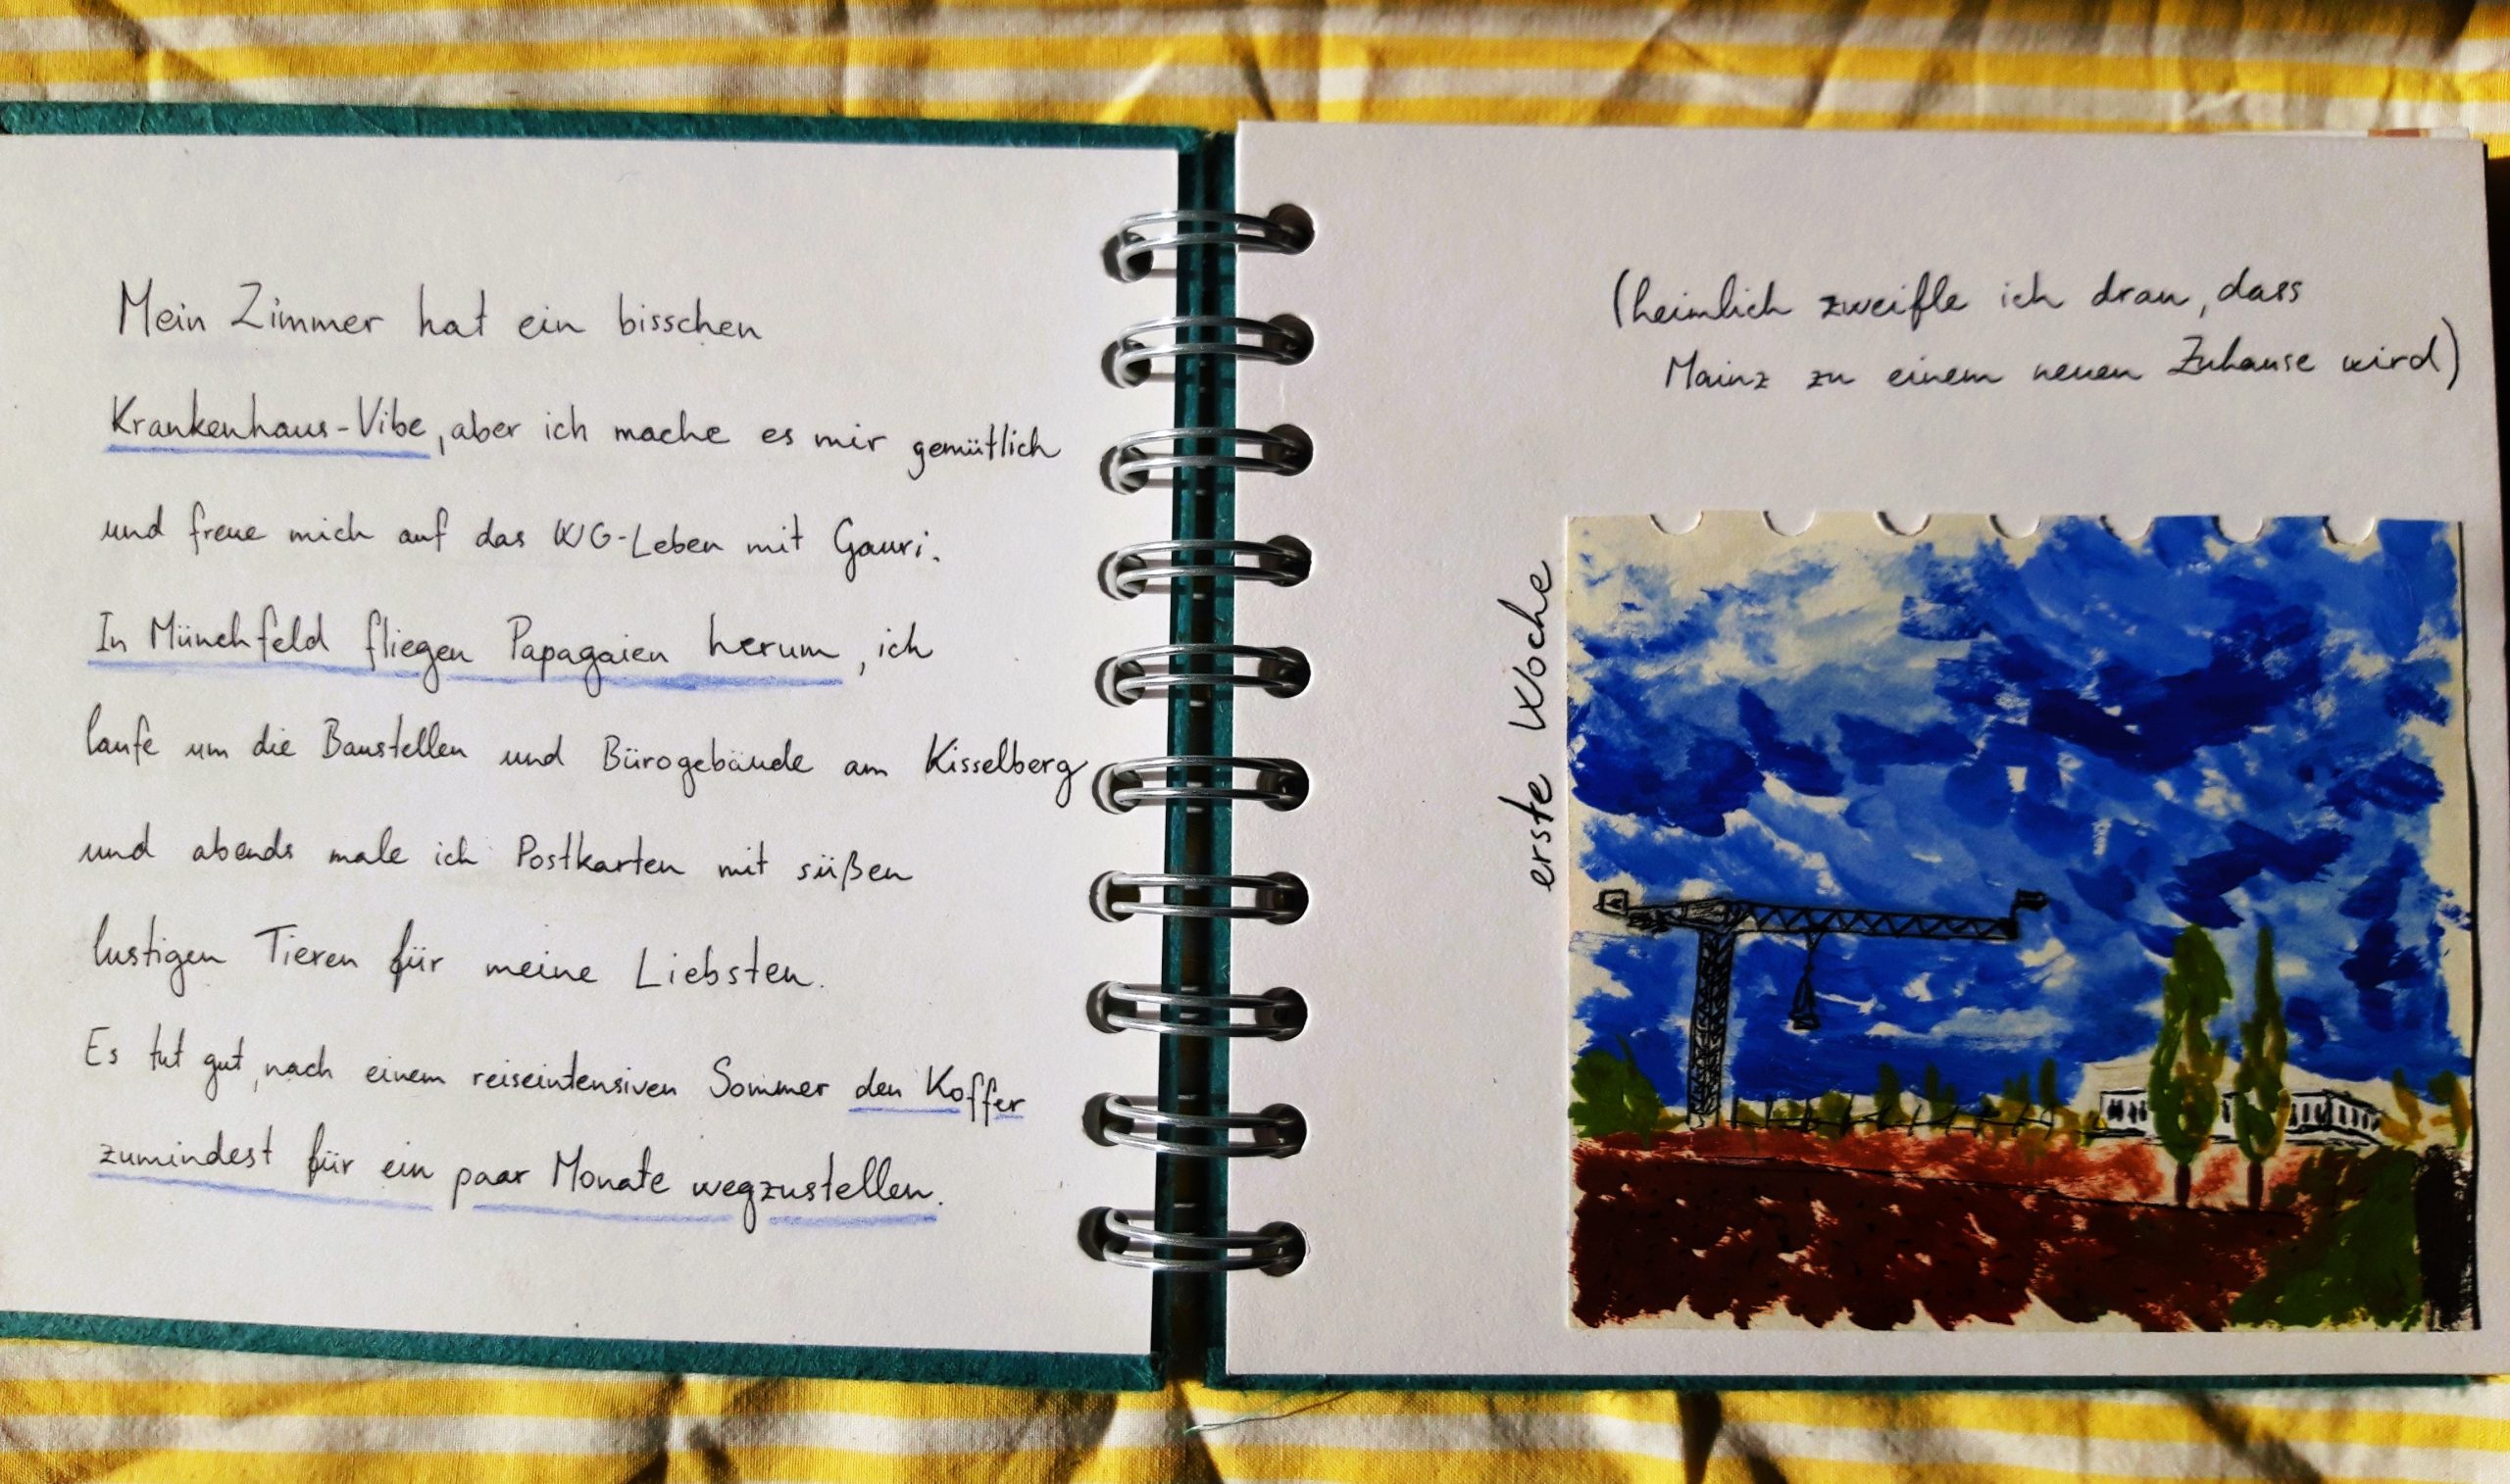 Mein Zimmer hat ein bisschen
Krankenhaus-Vibe, aber ich mache es mir gemütlich
und freue mich auf das WG-Leben mit Gauri.
In Münchfeld fliegen Papagaien herum, ich
laufe um die Baustellen und Bürogebäude am Kisselberg
und abends male ich Postkarten mit süßen
lustigen Tieren für meine Liebsten.
Es tut gut, nach einem reiseintensiven Sommer den Koffer
zumindest für ein paar Monate wegzustellen.
(heimlich zweifle ich dran, dass
Mainz zu einem neuen Zuhause wird)
erste Woche